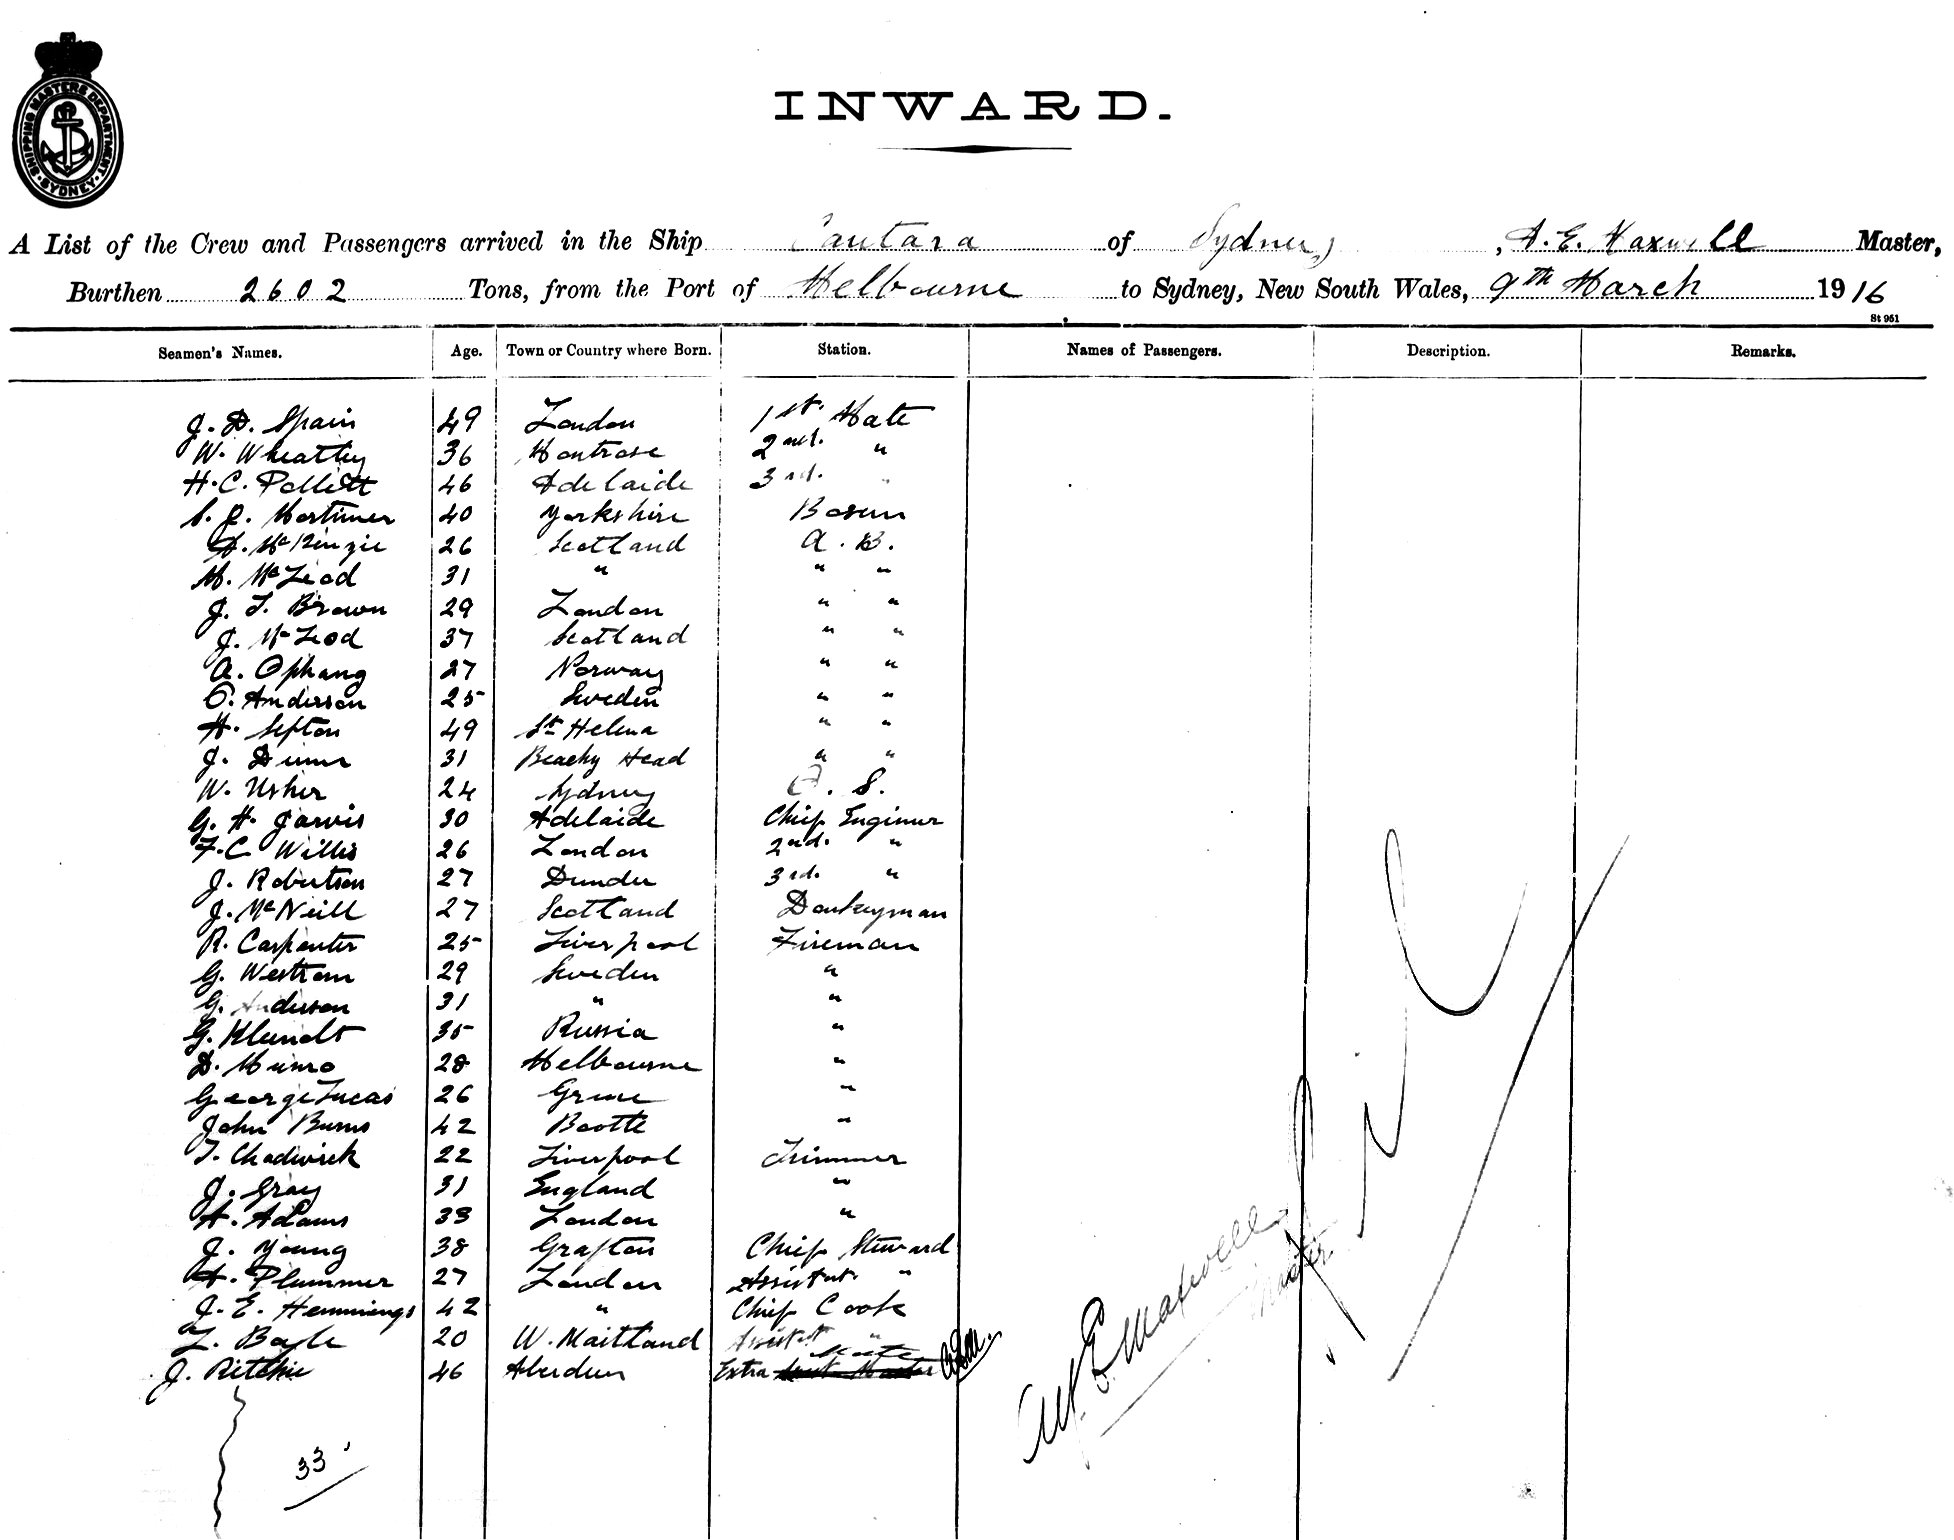 SHIPPING MASTERS DEPARTMENT · SYDNEY ·
INWARD.
A List of the Crew and Passengers arrived in the Ship Cantara of Sydney, A. E. Maxwell Master,
Burthen 2602 Tons, from the Port of Melbourne to Sydney, New South Wales, 9th March 1916
St 951
Seamen's Names. Age. Town or Country where Born. Station. Names of Passengers. Description. Remarks.
J. D. Spain 49 London 1st. Mate
W. Wheatley 36 Montrose 2nd. "
H. C. Pollett 46 Adelaide 3rd. "
S. J. Mortimer 40 Yorkshire Bosun
A. McKenzie 26 Scotland A. B.
M. McLeod 31 " " "
J. T. Brown 29 London " "
J. McLeod 37 Scotland " "
A. Ophang 27 Norway " "
O. Anderson 25 Sweden " "
H. Sefton 49 St Helena " "
J. Dunn 31 Beachy Head " "
W. Usher 24 Sydney O. S.
G. H. Jarvis 30 Adelaide Chief Engineer
F. C. Willis 26 London 2nd. "
J. Robertson 27 Dundee 3rd. "
J. McNeill 27 Scotland Donkeyman
R. Carpenter 25 Liverpool Fireman
G. Westrom 29 Sweden "
G. Anderson 31 " "
G. Klundt 35 Russia "
D. Munro 28 Melbourne "
George Lucas 26 Greece "
John Burns 42 Bootle "
T. Chadwick 22 Liverpool Trimmer
J. Gray 31 England "
A. Adams 33 London "
J. Young 38 Grafton Chief Steward
A. Plummer 27 London Assistant "
J. E. Hemmings 42 " Chief Cook
L. Bayle 20 W. Maitland Assistt "
J. Ritchie 46 Aberdeen Extra Mate
33
Alf. E. Maxwell
Master
Nil